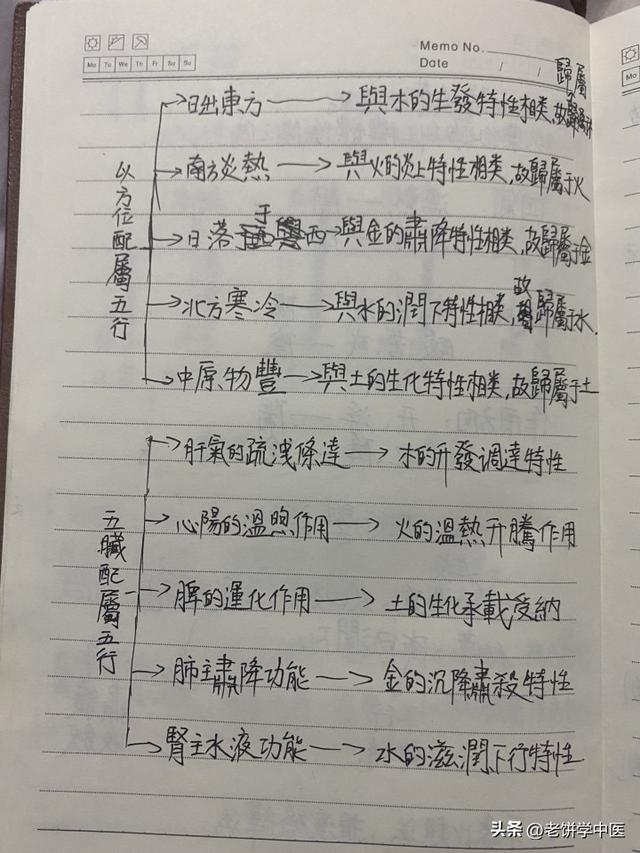 Memo No.
Mo Tu We Th Fr Sa Su
Date / /
以方位配屬五行
日出東方 → 與木的生發特性相类,故歸屬
南方炎熱 → 與火的炎上特性相类,故歸屬于火
日落于西 → 與金的肅降特性相类,故歸屬于金
北方寒冷 → 與水的潤下特性相类,故歸屬于水.
中原物豐 → 與土的生化特性相类,故歸屬于土
五臟配屬五行
肝氣的疏浅條達 → 木的升發调達特性
心陽的溫煦作用 → 火的溫熱升騰作用
脾的運化作用 → 土的生化承載受納
肺主肅降功能 → 金的沉降肅殺特性
腎主水液功能 → 水的滋潤下行特性
头条 @老饼学中医